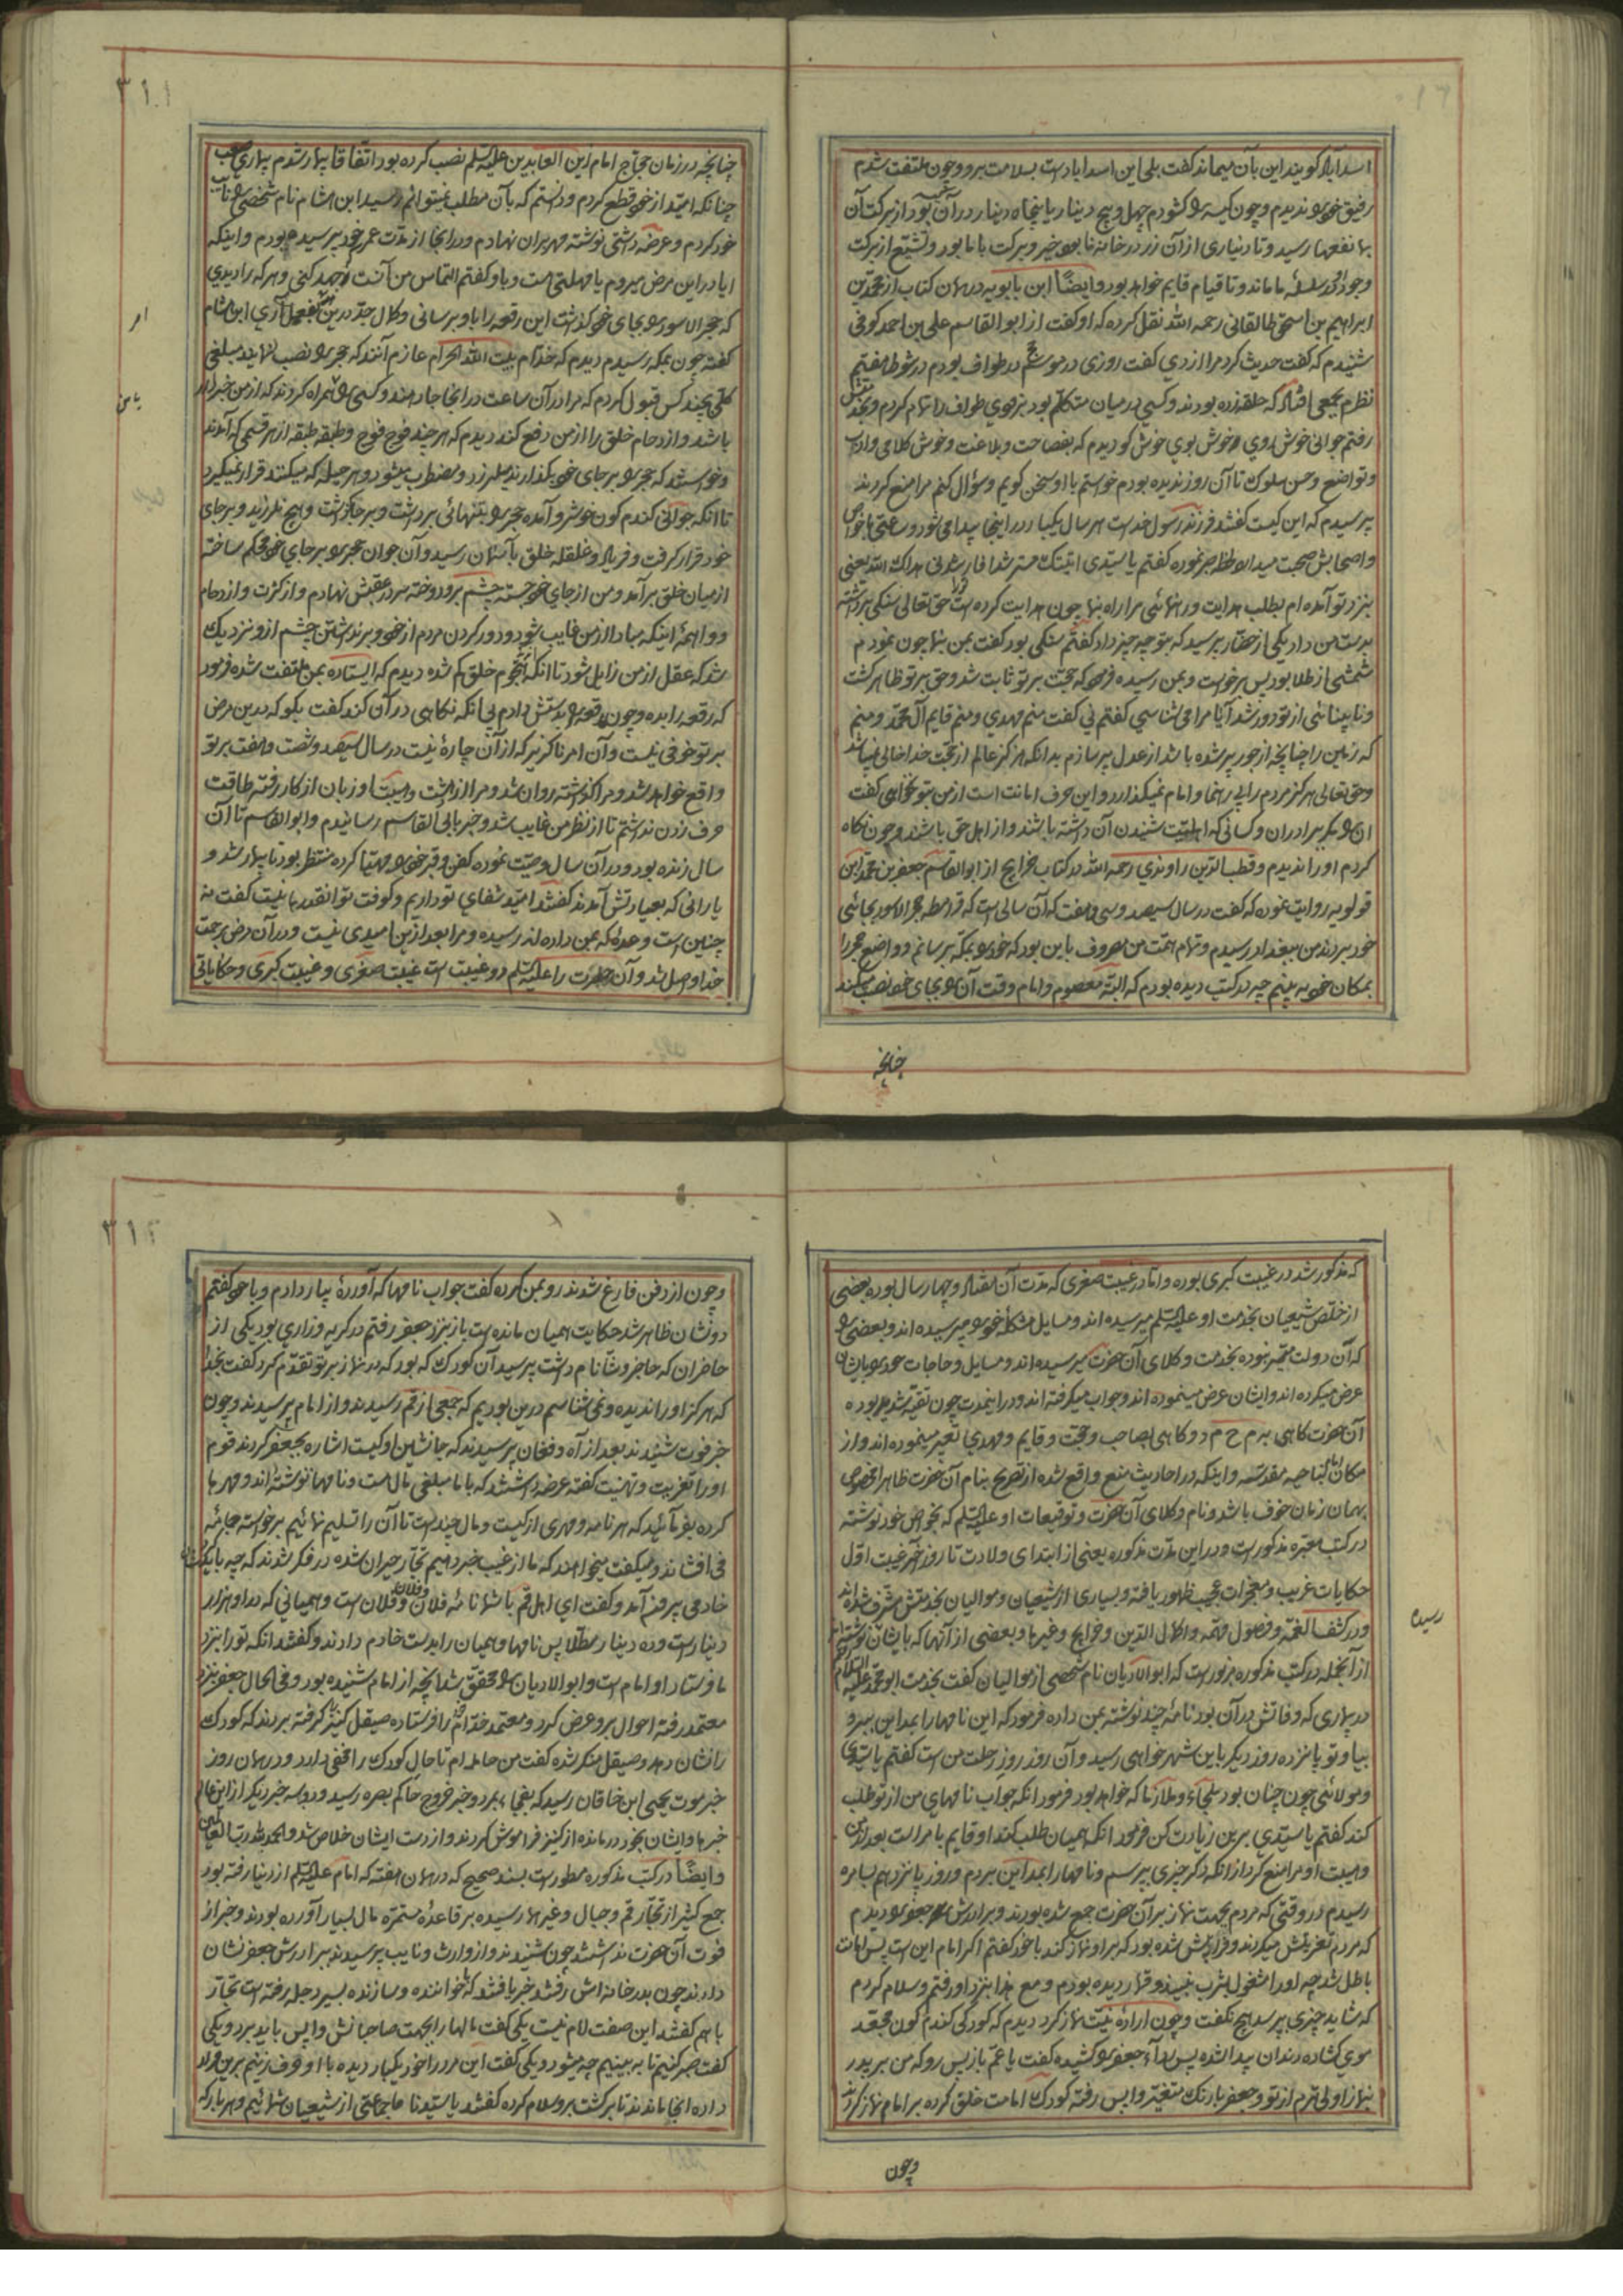 اسد آباد گویند این بآن میماند گفت بلی این اسداباد است بسلامت برو و چون ملتفت شدم
رفیق خود را ندیدم و چون کیسه را گشودم چهل و پنج دینار یا پنجاه دینار در آن بود از برکت آن
بما نفعها رسید و تا دیناری از آن زر در خانه ما بود خیر و برکت با ما بود و تشیع از برکت
وجود در سلسله ما ماند و تا قیام قایم خواهد بود و ایضًا ابن بابویه در همان کتاب از محمد بن
ابراهیم بن اسحق طالقانی رحمه الله نقل کرده که او گفت از ابو القاسم علی بن احمد کوفی
شنیدم که گفت حدیث کرد مرا ازدی گفت روزی در موسم در طواف بودم در شوط هفتم
نظرم بجمعی افتاد که حلقه زده بودند و کسی در میان متکلم بود بزودی طواف را تمام کردم و
رفتم جوانی خوش روی و خوش بوی خوش گو دیدم که بفصاحت و بلاغت و خوش کلامی و ادب
و تواضع و حسن سلوک تا آن روز ندیده بودم خواستم با او سخن گویم و سؤال کنم مرا منع کردند
پرسیدم که این کیست گفتند فرزند رسول خداست هر سال یکبار در اینجا پیدا می شود و ساعتی با خواص
و اصحابش صحبت میدارد نموده گفتم یا سیدی اتیتک مسترشدا فارشدنی هداک الله یعنی
بنزد تو آمده ام بطلب هدایت و رهنمائی مرا راه بنما چون هدایت کرده است ترا حق تعالی سنکی برداشته
بدست من داد یکی از حضار پرسید که بتو چه چیز داد گفتم سنکی بود گفت بمن بنما چون نمودم
شمشی از طلا بود پس برخواست و بمن رسیده فرمود که حجت بر تو ثابت شد و حق بر تو ظاهر گشت
و نابینائی از تو دور شد آیا مرا می شناسی گفتم نی گفت منم مهدی و منم قایم آل محمد و منم
که زمین را چنانچه از جور پر شده باشد از عدل پر سازم بدانکه هرگز عالم از حجت خدا خالی نمیباشد
و حق تعالی هرگز مردم را بی رهنما و امام نمیگذارد و این حرف امانت است از من بتو نخواهی گفت
ان مگر ببرادران و کسانی که اهلیت شنیدن آن داشته باشند و از اهل حق باشند و چون نگاه
کردم او را ندیدم و قطب الدین راوندی رحمه الله در کتاب خرایج از ابو القاسم جعفر بن محمد بن
قولویه روایت نموده که گفت در سال سیصد و سی و هفت که آن سالی است که قرامطه حجر الاسود بجائی
خود بردند من ببغداد رسیدم و تمام همت من مصروف باین بود که خود را بمکه برسانم و واضع حجر را
بمکان خود ببینم چه در کتب دیده بودم که البته معصوم و امام وقت آن را بجای خود نصب میکند
چنانچه
۳۱۱
چنانچه در زمان حجاج امام زین العابدین علیه السلم نصب کرده بود اتفاقا بیمار شدم بیماری صعب
چنانکه امید از خود قطع کردم و دانستم که بآن مطلب نمیتوانم رسید ابن هشام نام شخصی را نایب
خود کردم و عرضه داشتی نوشته مهر بران نهادم و در انجا از مدت عمر خود پرسیده بودم و اینکه
ایا در این مرض میروم یا مهلتی هست و باو گفتم التماس من آنست که جهد کنی و هر که را دیدی
که حجر الاسود را بجای خود گذاشت این رقعه را باو برسانی و کمال جد درین امر بفعل آری ابن هشام
گفته چون بمکه رسیدم دیدم که خدام بیت الله الحرام عازم آنند که حجر را نصب نمایند مبلغی
کلی بچند کس قبول کردم که مرا در آن ساعت در انجا جا دهند و کسی را همراه کردند که از من خبردار
باشد و ازدحام خلق را از من دفع کند دیدم که هر چند فوج فوج و طبقه طبقه از هر قسمی که آمدند
و خواستند که حجر را بر جای خود بگذارند میلرزد و مضطرب میشود و هر حیله که میکنند قرار نمیگیرد
تا انکه جوانی گندم گون خوشرو آمده حجر را بتنهائی برداشت و بر جا گذاشت و هیچ نلرزید و بر جای
خود قرار گرفت و فریاد و غلغله خلق بآسمان رسید و آن جوان حجر را بر جای خود محکم ساخته
از میان خلق برآمد و من از جای خود جسته چشم برو دوخته سر در عقبش نهادم و از کثرت و ازدحام
و واهمهٔ اینکه مبادا از من غایب شود و دور کردن مردم از خود و برنداشتن چشم ازو نزدیک
شد که عقل از من زایل شود تا انکه هجوم خلق کم شده دیدم که ایستاده بمن ملتفت شده فرمود
که رقعه را بده و چون رقعه را بدستش دادم بی انکه نگاهی در آن کند گفت بگو که درین مرض
بر تو خوفی نیست و آن امر ناگزیر که از آن چارهٔ نیست در سال سیصد و شصت و هفت بر تو
واقع خواهد شد و مرا گذاشته روان شد و مرا از دهشت و هیبت او زبان از کار رفته طاقت
حرف زدن نداشتم تا از نظر من غایب شد و خبر بابی القاسم رسانیدم و ابو القاسم تا آن
سال زنده بود و در آن سال وصیت نموده کفن و قبر خود را مهیا کرده منتظر بود تا بیمار شد و
یارانی که بعیادتش آمدند گفتند امید شفای تو داریم و کوفت تو انقدرها نیست گفت نه
چنین است وعدهٔ که بمن داده اند رسیده و مرا بعد از این امیدی نیست و در آن مرض برحمت
خدا واصل شد و آن حضرت را علیه السلم دو غیبت است غیبت صغری و غیبت کبری و حکایاتی
که مذکور شد در غیبت کبری بوده و اما در غیبت صغری که مدت آن هفتاد و چهار سال بوده بعضی
از خلص شیعیان بخدمت او علیه السلم میرسیده اند و مسایل مشکلهٔ خود را میپرسیده اند و بعضی را
که آن دولت میسر نبوده بخدمت وکلای آن حضرت میرسیده اند و مسایل و حاجات خود را بایشان
عرض میکرده اند و ایشان عرض مینموده اند و جواب میگرفته اند و در این مدت چون تقیه شدید بوده
آن حضرت گاهی به م ح م د و گاهی بصاحب و حجت و قایم و مهدی تعبیر مینموده اند و از
مکان بناحیه مقدسه و اینکه در احادیث منع واقع شده از تصریح بنام آن حضرت ظاهرا مخصوص
بهمان زمان خوف باشد و نام وکلای آن حضرت و توقیعات او علیه السلم که بخواص خود نوشته
در کتب معتبره مذکور است و در این مدت مذکوره یعنی از ابتدای ولادت تا روز آخر غیبت اول
حکایات غریب و معجزات عجیب ظهور یافته و بسیاری از شیعیان و موالیان بخدمتش مشرف شده اند
و در کشف الغمه و فصول مهمه و اکمال الدین و خرایج و غیرها و بعضی از آنها که بایشان نوشته اند
رسیده
از آنجمله در کتب مذکوره مزبور است که ابو الادیان نام شخصی از موالیان گفت بخدمت ابو محمد علیه السلام رفتم
در بیماری که وفاتش در آن بود نامهٔ چند نوشته بمن داده فرمود که این نامها را بمداین ببر و
بیا و تو پانزده روز دیگر باین شهر خواهی رسید و آن روز روز رحلت من است گفتم یا سیدی
و مولائی چون چنان بود ملجاء و ملاذ ما که خواهد بود فرمود انکه جواب نامهای من از تو طلب
کند گفتم یا سیدی برین زیادت کن فرمود انکه همیان طلب کند او قایم بامر است بعد از من
و هیبت او مرا منع کرد از انکه دگر چیزی بپرسم و نامها را بمداین بردم و روز پانزدهم بسامره
رسیدم در وقتی که مردم بجهت نماز بر آن حضرت جمع شده بودند و برادرش جعفر را دیدم
که مردم تعزیتش میکردند و قرار پیش شده بود که بر او نماز کند با خود گفتم اگر امام این است پس امامت
باطل شد چه او را مشغول بشرب نبیذ و قمار دیده بودم و مع هذا بنزد او رفتم و سلام کردم
که شاید چیزی بپرسد هیچ نگفت و چون ارادهٔ نیت نماز کرد دیدم که کودکی گندم گون مجعد
موی گشاده دندان پیدا شده پس رداء جعفر را کشیده گفت یا عم بازپس رو که من بر پدر
بنماز اولی ترم از تو و جعفر با رنگ متغیر واپس رفته کودک امامت خلق کرده بر امام نماز کردند
وچون
۳۱۲
و چون از دفن فارغ شدند رو بمن کرده گفت جواب نامها که آوردهٔ بیار دادم و با خود گفتم
دو نشان ظاهر شد حکایت همیان مانده است باز بنزد جعفر رفتم در گریه و زاری بود یکی از
حاضران که حاجز وشّا نام داشت پرسید آن کودک که بود که در نماز بر تو تقدم کرد گفت بخدا
که هرگز او را ندیده و نمی شناسم درین بودیم که جمعی از قم رسیدند و از امام پرسیدند و چون
خبر فوت شنیدند بعد از آه و فغان پرسیدند که جانشین او کیست اشاره بجعفر کردند قوم
او را تعزیت و تهنیت گفته عرضه داشتند که با ما مبلغی مال است و نامها نوشته اند و مهرها
کرده بفرمائید که هر نامه و مهری از کیست و مال چند است تا آن را تسلیم نمائیم برخواسته جامه
می افشاند و میگفت میخواهند که ما از غیب خبر دهیم تجار حیران شده در فکر شدند که چه باید کرد
خادمی بیرون آمد و گفت ای اهل قم با شما نامهٔ فلان و فلان و فلان است و همیانی که در او هزار
دینار است و ده دینار مطلا پس نامها و همیان را بدست خادم دادند و گفتند انکه تو را بنزد
ما فرستاد او امام است و ابو الادیان را محقق شد انچه از امام شنیده بود و فی الحال جعفر بنزد
معتمد رفته احوال برو عرض کرد و معتمد خدام را فرستاده صیقل کنیز را گرفته بردند که کودک
را نشان دهد و صیقل منکر شده گفت من حامله ام تا حال کودک را مخفی دارد و در همان روز
خبر موت یحیی ابن خاقان رسید که بفجاء بمرد و خبر خروج حاکم بصره رسید و دو سه خبر دیگر از این عالم
خبرها و ایشان بخود درمانده از کنیز فراموش کردند و از دست ایشان خلاص شد و الحمد لله رب العالمین
و ایضًا در کتب مذکوره مسطور است بسند صحیح که در همان هفته که امام علیه السلم از دنیا رفته بود
جمع کثیر از تجار قم و جبال و غیرها رسیده بر قاعدهٔ مستمره مال بسیار آورده بودند و خبر از
فوت آن حضرت نداشتند چون شنیدند و از وارث و نایب پرسیدند ببرادرش جعفر نشان
دادند چون بدر خانه اش رفتند خبر یافتند که با خواننده و سازنده بسیر دجله رفته است تجار
با هم گفتند این صفت امام نیست یکی گفت مالها را بجهت صاحبانش واپس باید برد و یکی
گفت صبر کنیم تا ببینیم چه میشود و یکی گفت این مرد را خود یکبار دیده با او حرف زنیم برین قرار
داده انجا ماندند تا برگشت برو سلام کرده گفتند یا سیدنا ما جماعتی از شیعیان شمائیم و هر بار که